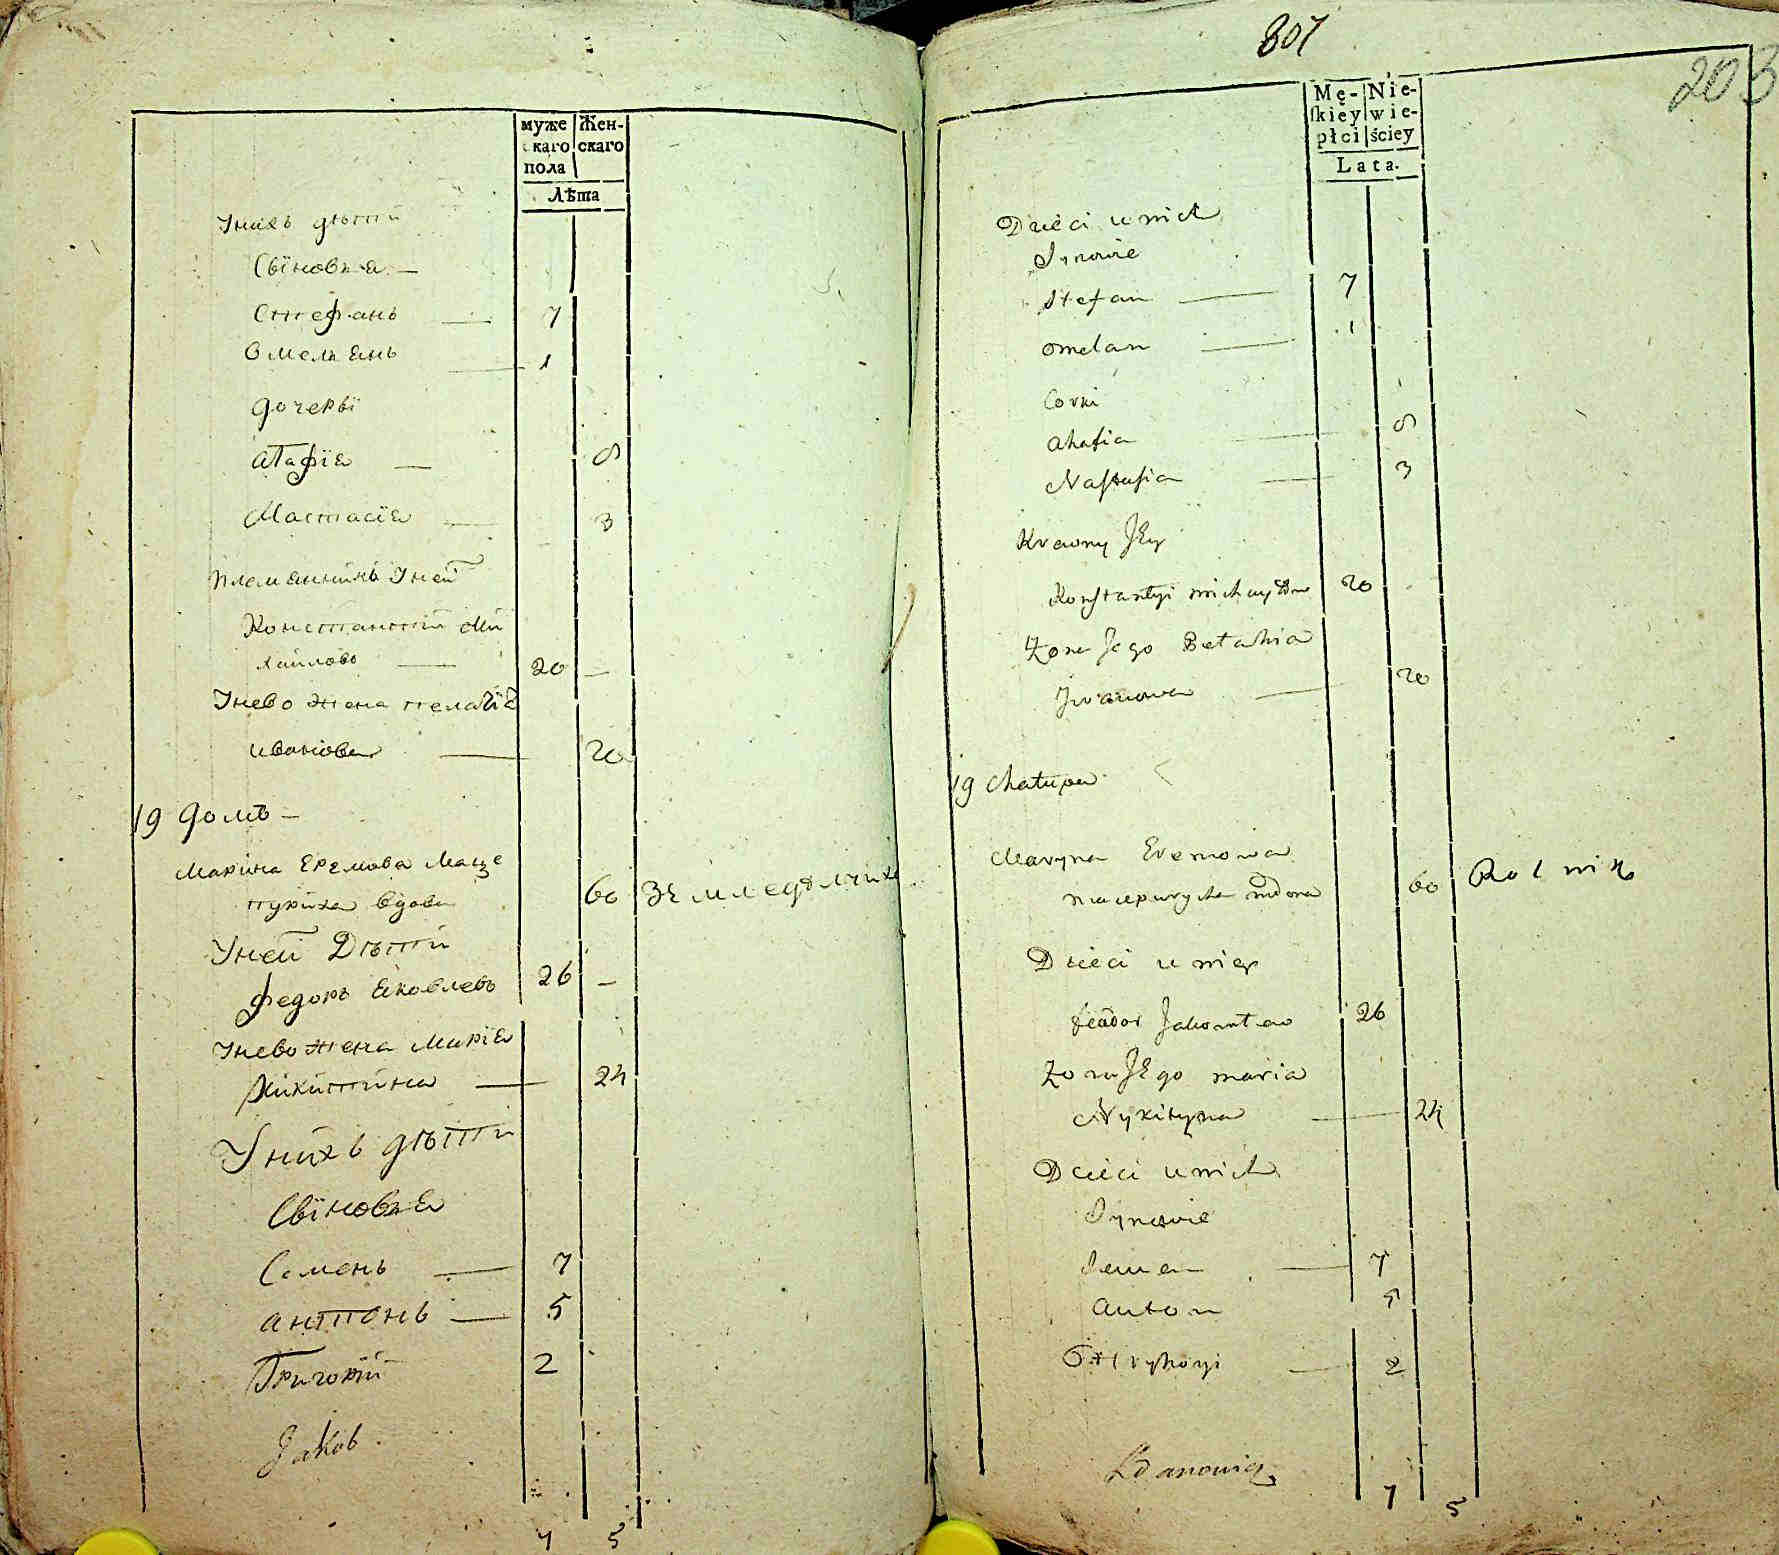 муже Жен-
скаго скаго
пола
Лѣта
Унихъ дѣтти
Сыновья —
Сттефанъ — 7
Омельянъ — 1
дочеры
Агафія — 8
Настасія — 3
племянникъ Уней
Константтий Ми
хайлово — 20 —
Унево жена пелагія
иванова — 20
19 домъ —
Марина Еремова Маце
пуриха вдова 60 Землед
Уней Дѣтти
федоръ Яковлевъ 26 —
Унево жена Марія
Никитина — 24
Унихъ дѣтти
Сыновья
Семенъ — 7
анттонъ — 5
Григорій 2
Jakob
7 5
801
203
Mę- Nie-
ſkiey wie-
płci ściey
Lata.
Dzieci u nich
Synowie
Stefan — 7
Omelan — 1
Corki
Ahafia — 8
Naſtaſia — 3
Krewny JEy
Konſtantyi 20
Żona Jego Pelahia
Jwanowa — 20
19 Chałupa
Maryna Eremowa
Macepurycha wdowa 60 Rolnik
Dzieci u niey
feador Jakowlew 26
Żona JEgo maria
Nykityna — 24
Dzieci u nich
Synowie
Semen — 7
Anton 5
Hryhoryi — 2
Zdanowicz
7 5